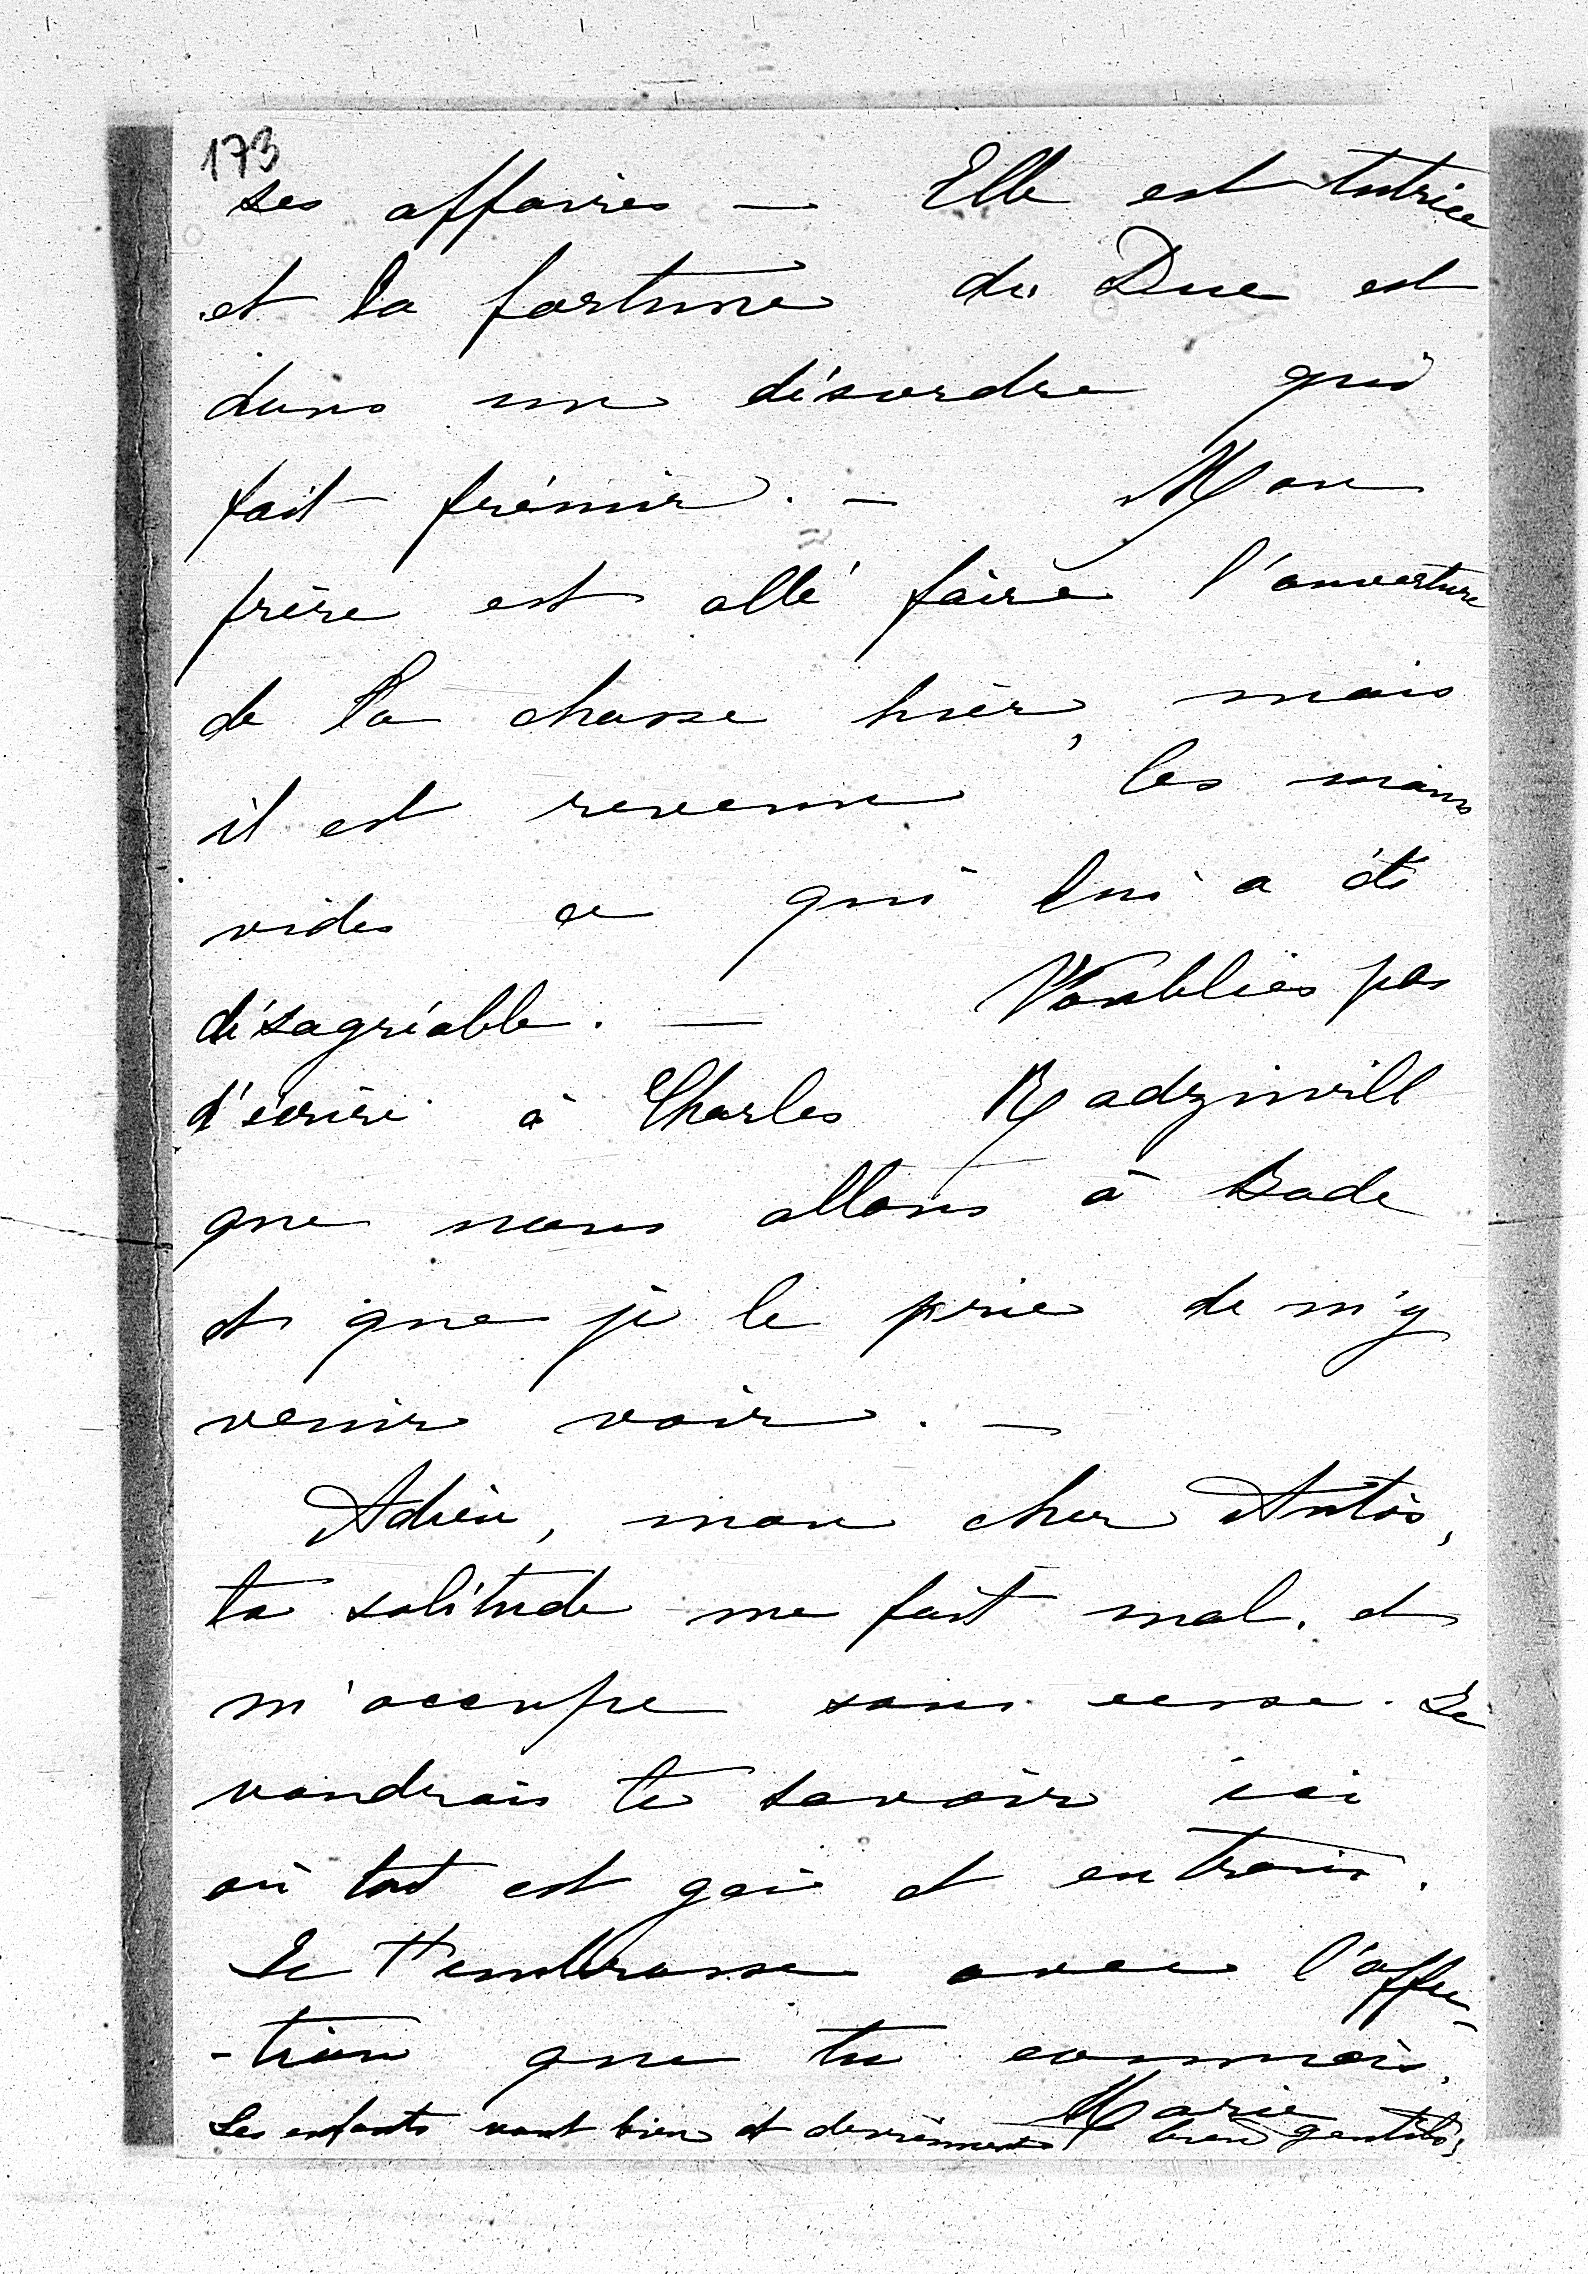 173
ses affaires — Elle est tutrice
et la fortune du Duc est
dans un désordre qui
fait frémir. — Mon
frère est allé faire l'ouverture
de la chasse hier, mais
il est revenu les mains
vides ce qui lui a été
désagréable. — N'oublies pas
d'écrire à Charles Radziwill
que nous allons à Bade
et que je le prie de m'y
venir voir. —
Adieu, mon cher Antos,
ta solitude me fait mal. et
m'occupe sans cesse. Je
voudrais te savoir ici
où tout est gai et en train.
Je t'embrasse avec l'affec-
-tion que tu connais.
Marie
Les enfants vont bien et deviennent bien gentils.